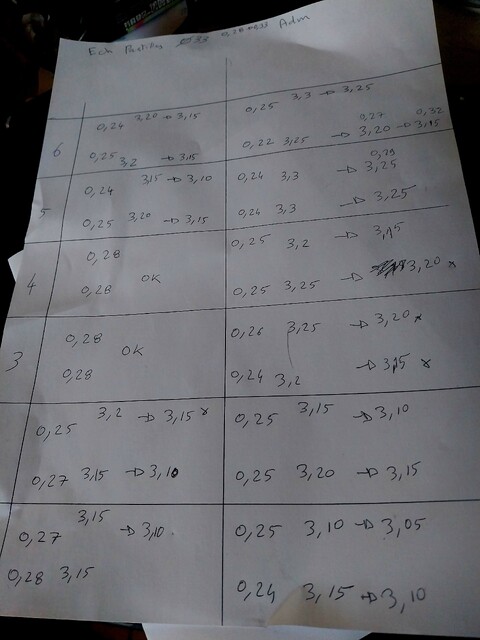 Ech 0,28 0,33 Adm
0,24 3,20 → 3,15 0,25 3,3 → 3,25
6 0,25 3,2 → 3,15 0,22 3,25 → 3,20 0,27 → 3,15 0,32
0,24 3,15 → 3,10 0,24 3,3 → 3,25 0,29
5 0,25 3,20 → 3,15 0,24 3,3 → 3,25
0,28 0,25 3,2 → 3,15
4 0,28 OK 0,25 3,25 → 3,20 x
0,28 0,26 3,25 → 3,20 x
3 0,28 OK 0,24 3,2 → 3,15 x
0,25 3,2 → 3,15 x 0,25 3,15 → 3,10
0,27 3,15 → 3,10 0,25 3,20 → 3,15
0,27 3,15 → 3,10. 0,25 3,10 → 3,05
0,28 3,15 0,24 3,15 → 3,10